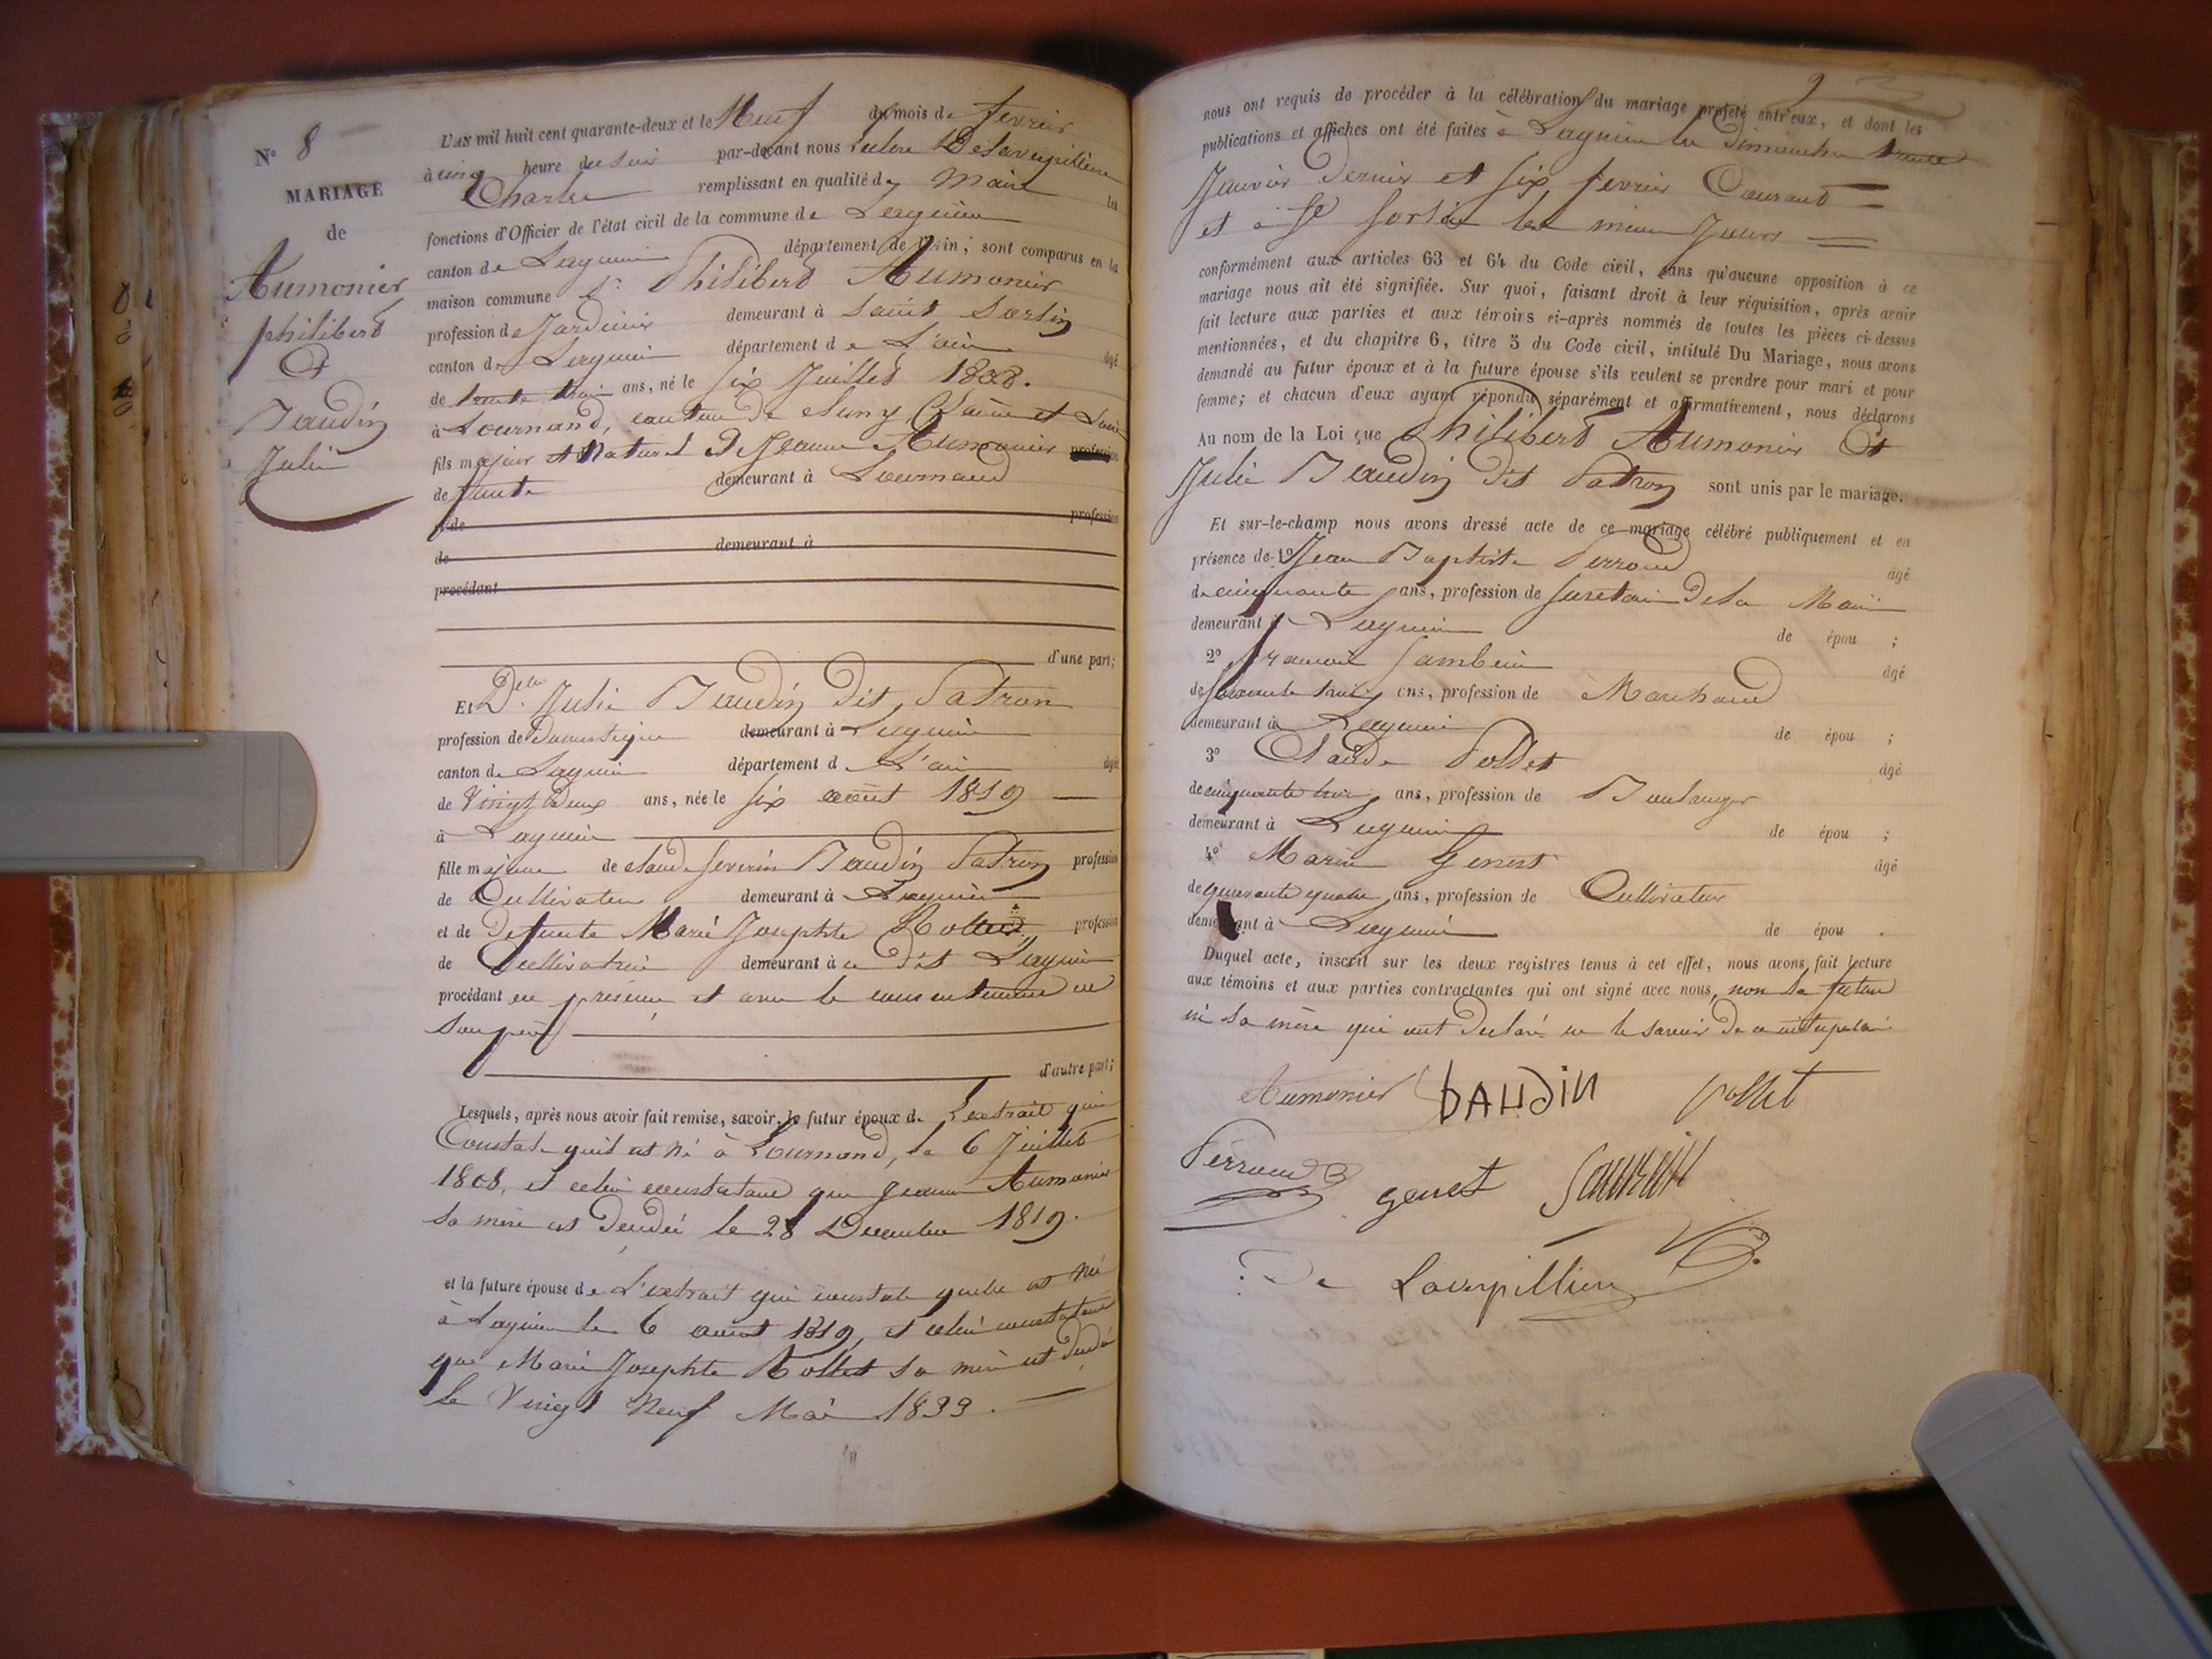 N° 8
MARIAGE
de
Aumonier
philiberd
Et
Baudin
Julie
L'AN mil huit cent quarante-deux et le Neuf du mois de fevrier
à cinq heure du soir par-devant nous
Charles remplissant en qualité de Maire les
fonctions d'Officier de l'état civil de la commune de Lagnieu
canton de Lagnieu département de l'Ain ; sont comparus en la
maison commune Sr. Philiberd Aumonier
profession de Jardinier demeurant à Saint Sorlin
canton de Lagnieu département de L'ain âgé
de trente trois ans, né le six Juilled 1808.
à Lournand, canton de Cluny, Saône et Loire
fils majeur et Naturel de Jeanne Aumonier profession
de funte demeurant à Lournand
et de profession
de demeurant à
procédant
d'une part;
Et Delle Julie Baudin dit Patron
profession de Domestique demeurant à Lagnieu
canton de Lagnieu département de L'ain âgé
de Vingt deux ans, née le six août 1819
à Lagnieu
fille majeure de claude severin Baudin Patron profession
de Cultivateur demeurant à Lagnieu
et de Defunte Marie Josephte Rolled profession
de Cultivatrice demeurant à u dit Lagnieu
procédant en presence et avec le consentement de
son père
d'autre part;
Lesquels, après nous avoir fait remise, savoir, le futur époux de L'extrait qui
Constate quil est né à Lournand, le 6 Juilled
1808, et celui constatant que Jeanne Aumonier
sa mère est décédée le 28 Décembre 1819.
et la future épouse de L'extrait qui constate quelle est né
à Lagnieu le 6 aout 1819, et celui constatant
que Marie Josephte Rolled sa mère est décédé
le Vingt Neuf Mai 1833.
9
nous ont requis de procéder à la célébration du mariage projeté entr'eux, et dont les
publications et affiches ont été faites à Lagnieu les Dimanches trente
Janvier dernier et six fevrier Courant
et à St Sorlin les même Jours
conformément aux articles 63 et 64 du Code civil, sans qu'aucune opposition à ce
mariage nous ait été signifiée. Sur quoi, faisant droit à leur réquisition, après avoir
fait lecture aux parties et aux témoins ci-après nommés de toutes les pièces ci-dessus
mentionnées, et du chapitre 6, titre 5 du Code civil, intitulé Du Mariage, nous avons
demandé au futur époux et à la future épouse s'ils veulent se prendre pour mari et pour
femme; et chacun d'eux ayant répondu séparément et affirmativement, nous déclarons
Au nom de la Loi que Philiberd Aumonier Et
Julie Baudin dit Patron sont unis par le mariage.
Et sur-le-champ nous avons dressé acte de ce mariage célébré publiquement et en
présence de 1° Jean Baptiste Perroud âgé
de cinquante ans, profession de secretaire de la Mairie
demeurant à Lagnieu de épou ;
2° francois âgé
de soixante trois ans, profession de Marchand
demeurant à Lagnieu de épou ;
3° Claude Polled âgé
de cinquante trois ans, profession de Boulanger
demeurant à Lagnieu de épou ;
4° Marin Genest âgé
de quarante quatre ans, profession de Cultivateur
demeurant à Lagnieu de épou .
Duquel acte, inscrit sur les deux registres tenus à cet effet, nous avons fait lecture
aux témoins et aux parties contractantes qui ont signé avec nous, non la future
ni sa mère qui ont declaré ne le savoir de ce interpelé
Aumonier BAUDIN pollet
Perroud genest
De Laverpilliere